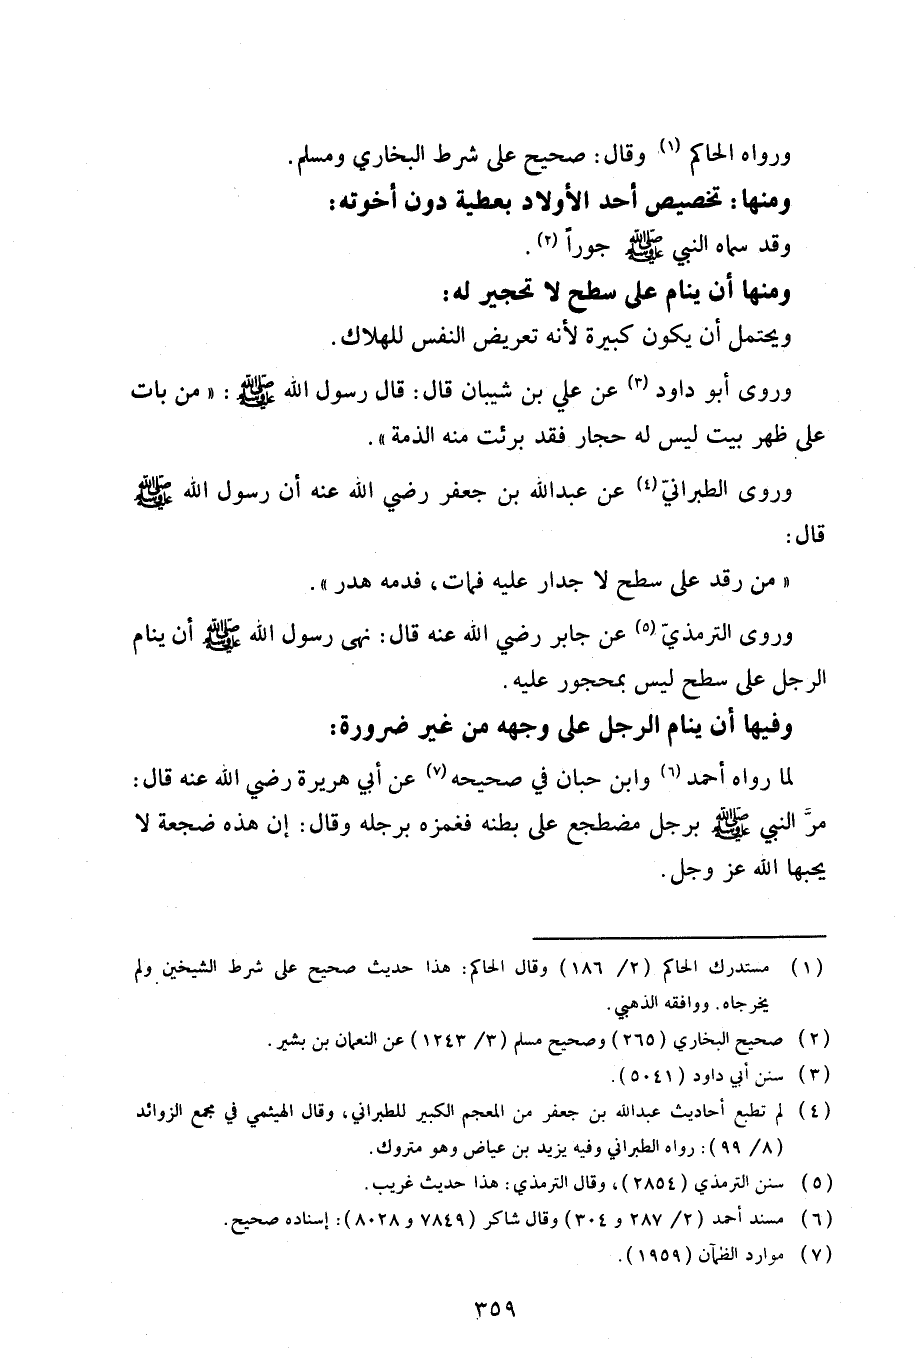 ورواه الحاكم (١) وقال: صحيح على شرط البخاري ومسلم.
ومنها: تخصيص أحد الأولاد بعطية دون أخوته:
وقد سماه النبي ﷺ جوراً (٢).
ومنها أن ينام على سطح لا تحجير له:
ويحتمل أن يكون كبيرة لأنه تعريض النفس للهلاك.
وروى أبو داود (٣) عن علي بن شيبان قال: قال رسول الله ﷺ: «من بات
على ظهر بيت ليس له حجار فقد برئت منه الذمة».
وروى الطبرانيّ (٤) عن عبدالله بن جعفر رضي الله عنه أن رسول الله ﷺ
قال:
«من رقد على سطح لا جدار عليه فمات، فدمه هدر».
وروى الترمذيّ (٥) عن جابر رضي الله عنه قال: نهى رسول الله ﷺ أن ينام
الرجل على سطح ليس بمحجور عليه.
وفيها أن ينام الرجل على وجهه من غير ضرورة:
لما رواه أحمد (٦) وابن حبان في صحيحه (٧) عن أبي هريرة رضي الله عنه قال:
مرَّ النبي ﷺ برجل مضطجع على بطنه فغمزه برجله وقال: إن هذه ضجعة لا
يحبها الله عز وجل.
(١) مستدرك الحاكم (٢/ ١٨٦) وقال الحاكم: هذا حديث صحيح على شرط الشيخين ولم
يخرجاه. ووافقه الذهبي.
(٢) صحيح البخاري (٢٦٥) وصحيح مسلم (٣/ ١٢٤٣) عن النعمان بن بشير.
(٣) سنن أبي داود (٥٠٤١).
(٤) لم تطبع أحاديث عبدالله بن جعفر من المعجم الكبير للطبراني، وقال الهيثمي في مجمع الزوائد
(٨/ ٩٩): رواه الطبراني وفيه يزيد بن عياض وهو متروك.
(٥) سنن الترمذي (٢٨٥٤)، وقال الترمذي: هذا حديث غريب.
(٦) مسند أحمد (٢/ ٢٨٧ و ٣٠٤) وقال شاكر (٧٨٤٩ و ٨٠٢٨): إسناده صحيح.
(٧) موارد الظمآن (١٩٥٩).
٣٥٩